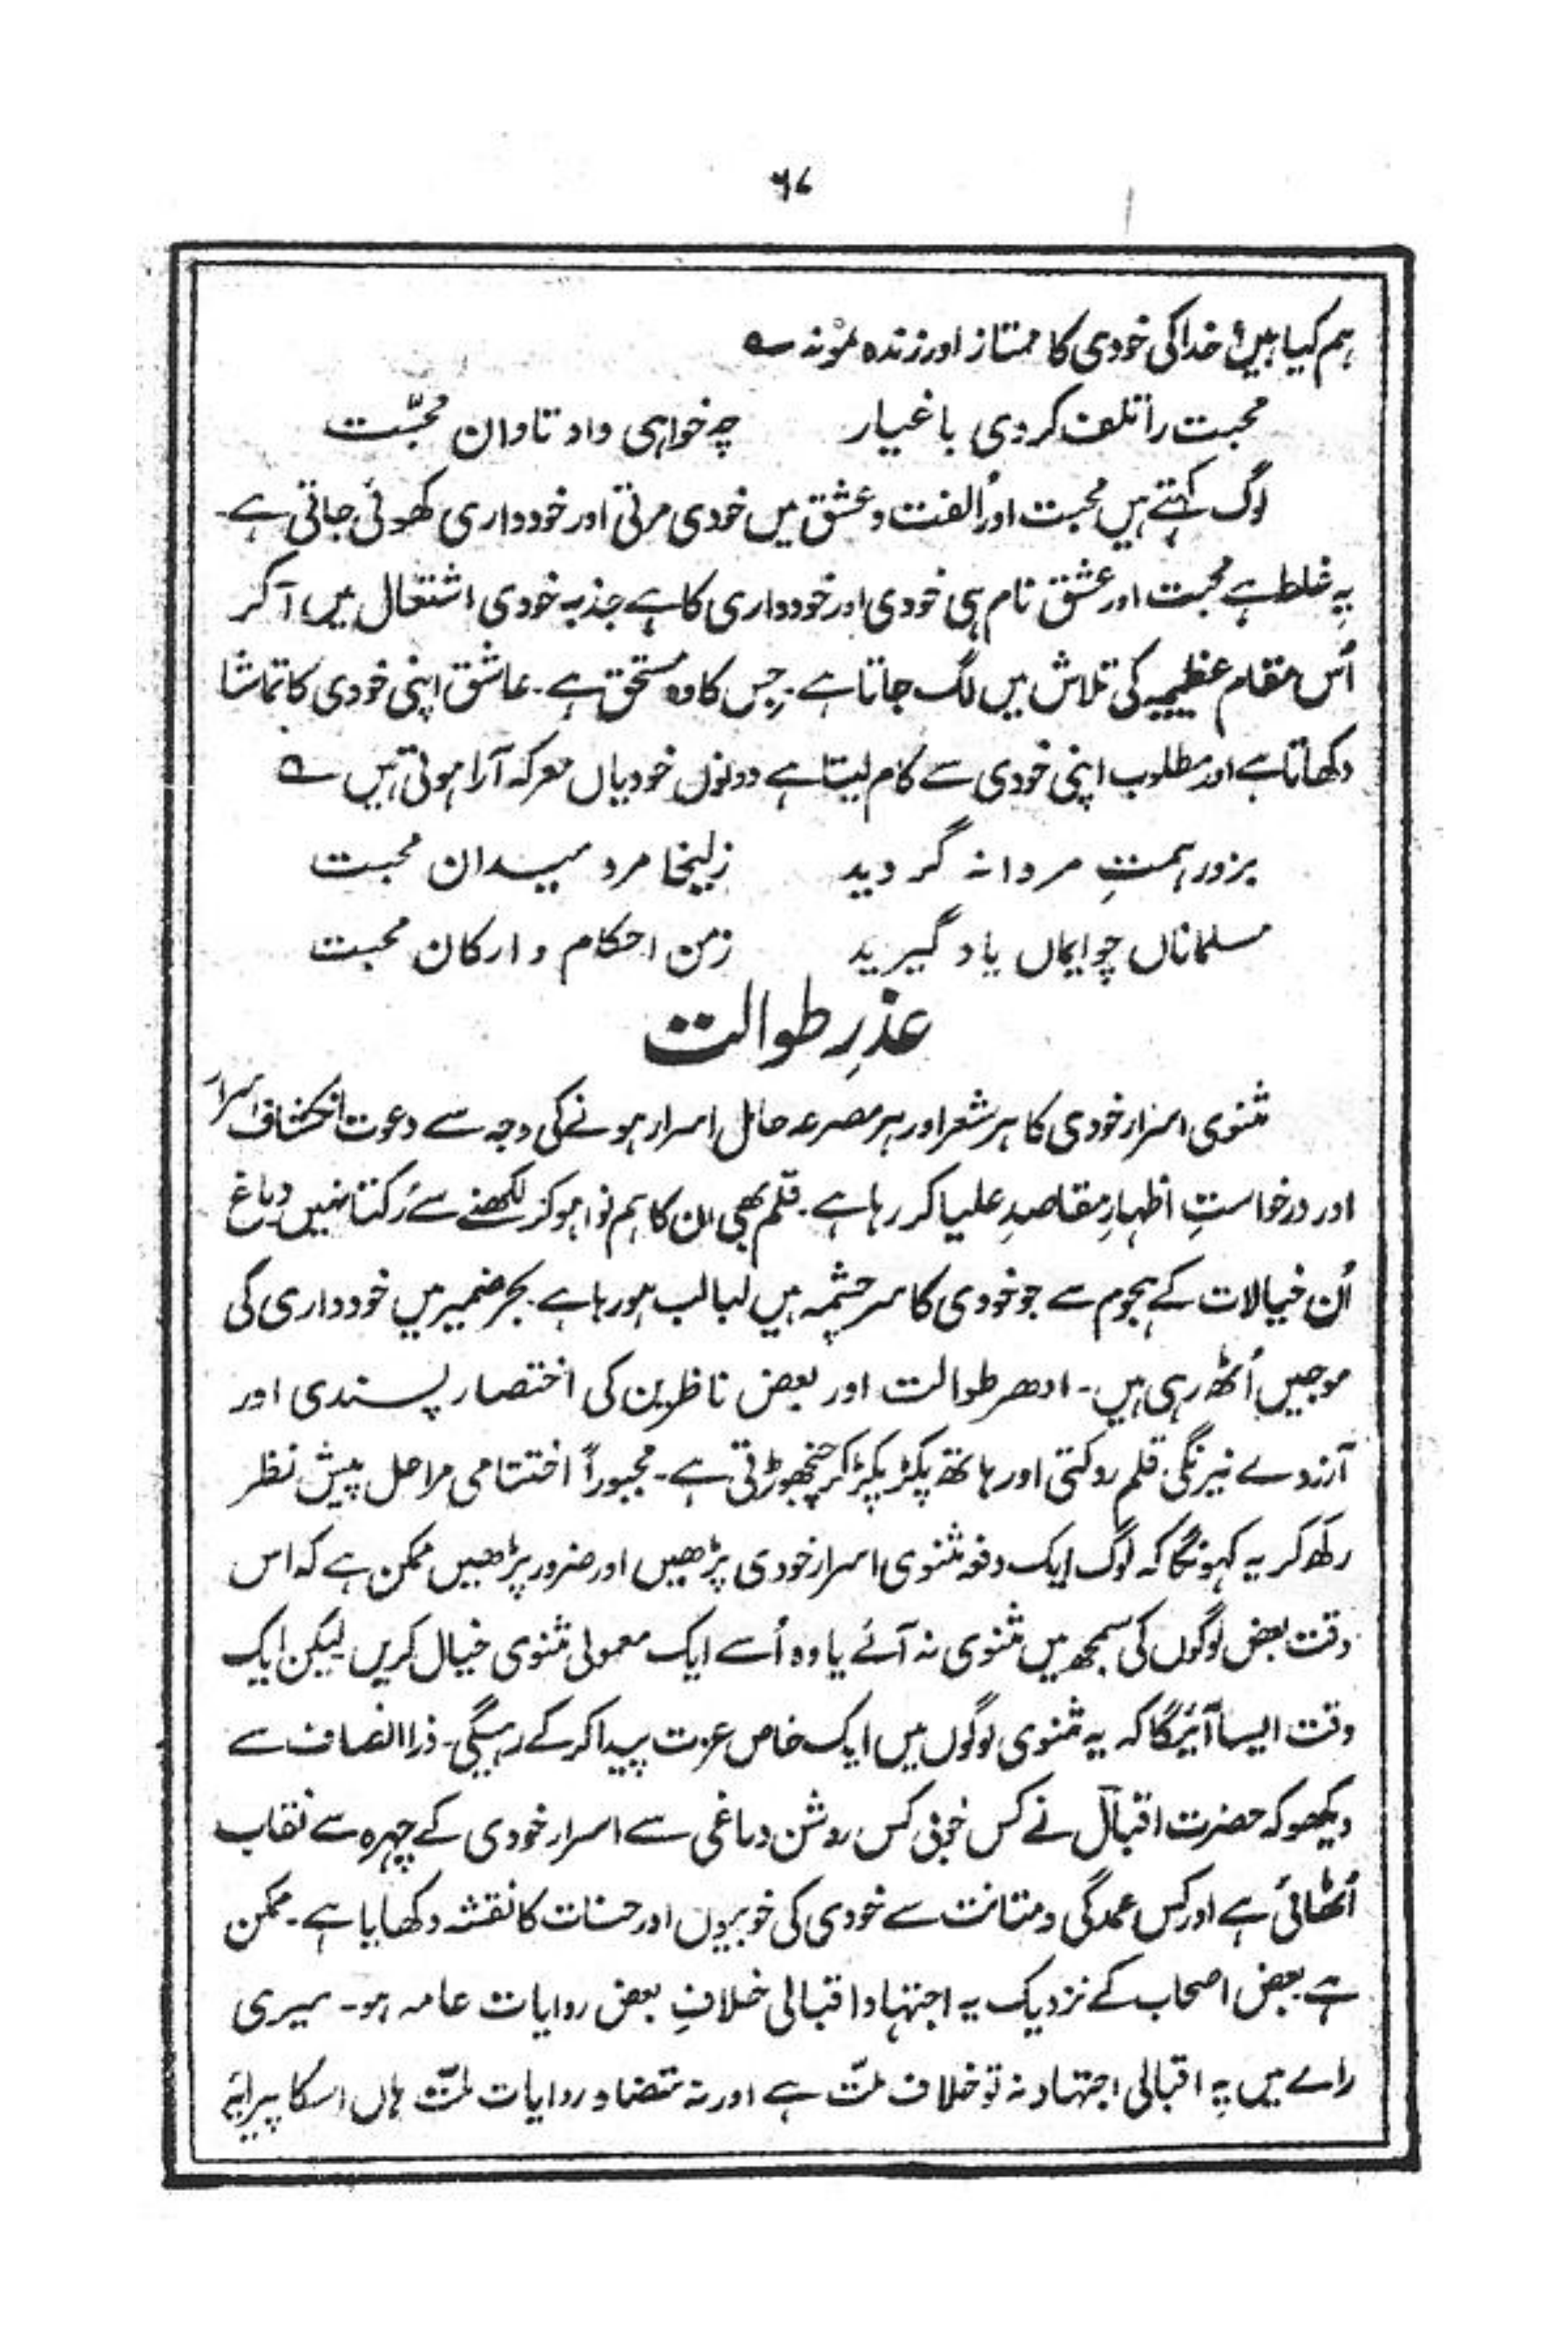 ۶۷
ہم کیا ہیں؟ خدا کی خودی کا ممتاز اور زندہ نمونہ ؎
محبت را تلف کردی باغیار چہ خواہی داد تاوان محبّت
لوگ کہتے ہیں محبت اور اُلفت و عشق میں خودی مرتی اور خودداری کھوئی جاتی ہے۔
یہ غلط ہے محبت اور عشق نام ہی خودی اور خودداری کا ہے جذبہ خودی اشتعال میں آکر
اُس مقام عظیمیہ کی تلاش میں لگ جاتا ہے۔ جس کا وہ مستحق ہے۔ عاشق اپنی خودی کا تماشا
دکھاتا ہے اور مطلوب اپنی خودی سے کام لیتا ہے دونوں خودیاں معرکہ آرا ہوتی ہیں ؎
بزور ہمتِ مردانہ گردید زلیخا مرد میدان محبت
مسلماناں چو ایماں یاد گیرید زمن احکام و ارکان محبت
عذرِ طوالت
مثنوی اسرار خودی کا ہر شعر اور ہر مصرعہ حامل اسرار ہونے کی وجہ سے دعوت انکشاف اسرار
اور درخواستِ اظہارِ مقاصدِ علیا کر رہا ہے۔ قلم بھی ان کا ہم نوا ہو کر لکھنے سے رُکتا نہیں دماغ
اُن خیالات کے ہجوم سے جو خودی کا سرچشمہ ہیں لبالب ہو رہا ہے۔ بحر ضمیر میں خودداری کی
موجیں اُٹھ رہی ہیں۔ ادھر طوالت اور بعض ناظرین کی اختصار پسندی اور
آرزوے نیرنگی قلم روکتی اور ہاتھ پکڑ پکڑ کر جھنجھوڑتی ہے۔ مجبوراً اختتامی مراحل پیش نظر
رکھ کر یہ کہونگا کہ لوگ ایک دفعہ مثنوی اسرار خودی پڑھیں اور ضرور پڑھیں ممکن ہے کہ اس
وقت بعض لوگوں کی سمجھ میں مثنوی نہ آئے یا وہ اُسے ایک معمولی مثنوی خیال کریں۔ لیکن ایک
وقت ایسا آئیگا کہ یہ مثنوی لوگوں میں ایک خاص عزت پیدا کر کے رہیگی۔ ذرا انصاف سے
دیکھو کہ حضرت اقبالؔ نے کس خوبی کس روشن دماغی سے اسرار خودی کے چہرہ سے نقاب
اُٹھائی ہے اور کس عمدگی و متانت سے خودی کی خوبیوں اور حسنات کا نقشہ دکھایا ہے۔ ممکن
ہے بعض اصحاب کے نزدیک یہ اجتہاد اقبالی خلافِ بعض روایات عامہ ہو۔ میری
راے میں یہ اقبالی اجتہاد نہ تو خلاف ملّت ہے اور نہ متضاد روایات ملّت ہاں اسکا پیرایۂ